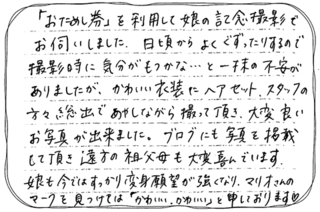 「おためし券」を利用して娘の記念撮影で
お伺いしました。日頃からよくぐずったりするので
撮影時に気分がもつかな…と一抹の不安が
ありましたが、かわいい衣装にヘアセット、スタッフの
方々総出であやしながら撮って頂き、大変良い
お写真が出来ました。ブログにも写真を掲載
して頂き遠方の祖父母も大変喜んでいます。
娘も今ではすっかり変身願望が強くなり、マリオさんの
マークを見つけては「かわいい、かわいい」と申しております♡